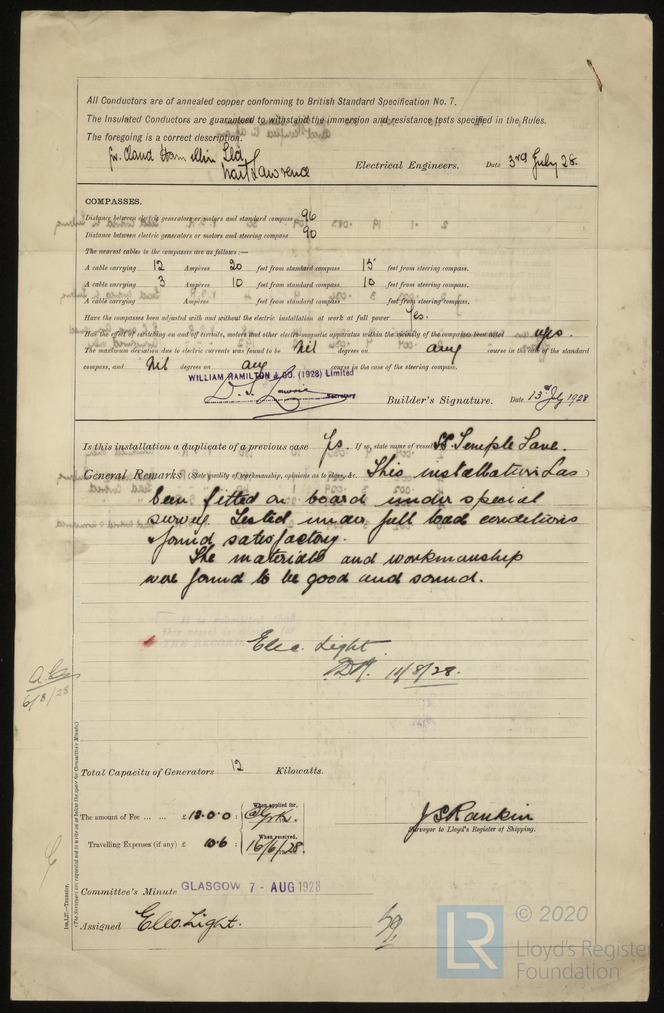 All Conductors are of annealed copper conforming to British Standard Specification No. 7.
The Insulated Conductors are guaranteed to withstand the immersion and resistance tests specified in the Rules.
The foregoing is a correct description.
Ltd
Lawrence Electrical Engineers. Date 3rd July 28.
COMPASSES.
Distance between electric generators or motors and standard compass 96
Distance between electric generators or motors and steering compass 90
The nearest cables to the compasses are as follows:—
A cable carrying 12 Ampères 20 feet from standard compass 15 feet from steering compass.
A cable carrying 3 Ampères 10 feet from standard compass 10 feet from steering compass.
A cable carrying Ampères feet from standard compass feet from steering compass.
Have the compasses been adjusted with and without the electric installation at work at full power Yes.
Has the effect of switching on and off circuits, motors and other electro-magnetic apparatus within the vicinity of the compasses been noted yes.
The maximum deviation due to electric currents was found to be Nil degrees on any course in the case of the standard
compass, and Nil degrees on any course in the case of the steering compass.
WILLIAM HAMILTON & CO. (1928) Limited
Secretary Builder's Signature. Date 13th July 1928
Is this installation a duplicate of a previous case Yes. If so, state name of vessel SS. Temple Lane.
General Remarks (State quality of workmanship, opinions as to class, &c. This installation has
been fitted on board under special
survey. Tested under full load conditions
& found satisfactory.
The materials and workmanship
were found to be good and sound.
Elec. Light.
11/8/28.
6/8/28
Total Capacity of Generators 12 Kilowatts.
The amount of Fee ... ... £ 12.0.0 : When applied for,
Travelling Expenses (if any) £ 10.6 : When received,
16/6/28.
J S Rankin
Surveyor to Lloyd's Register of Shipping.
Committee's Minute GLASGOW 7 - AUG 1928
Assigned Elec. Light.
(The Surveyors are requested not to write on or below the space for Committee's Minute.)
LR © 2020
Lloyd's Register
Foundation